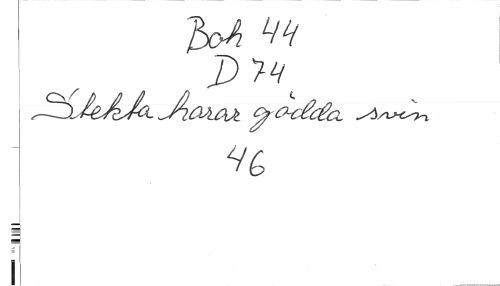 Boh 44
D 74
Stekta harar gödda svin
46